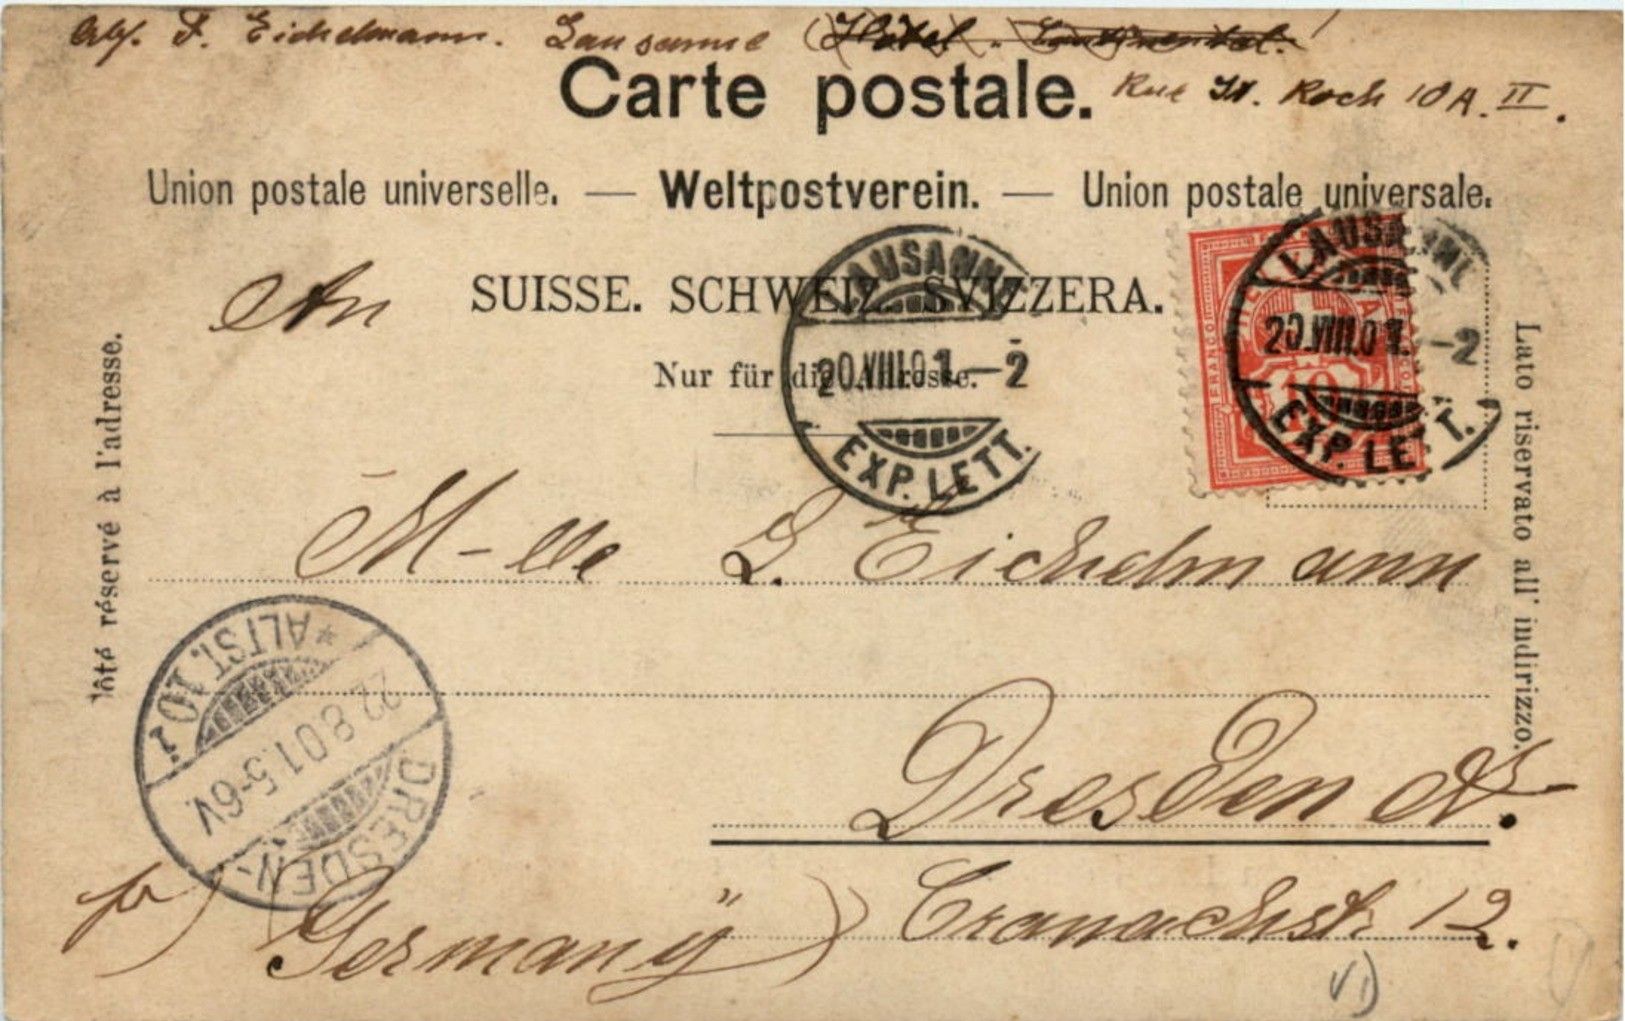 F. Eichelmann. Lausanne (Hôtel. Continental.)
Carte postale. Rue St. Roch 10 A. II.
Union postale universelle. — Weltpostverein. — Union postale universale.
An
SUISSE. SCHWEIZ. SVIZZERA.
Nur für die Adresse.
LAUSANNE
20.VIII.01.–2
EXP. LETT.
LAUSANNE
20.VIII.01.–2
EXP. LETT.
FRANCO
10
Côté réservé à l'adresse.
Lato riservato all' indirizzo.
M-lle L. Eichelmann
Dresden A.
Cranachstr 12.
Germany
DRESDEN-
22.8.01.5-6V.
*ALTST.10 i
VI)